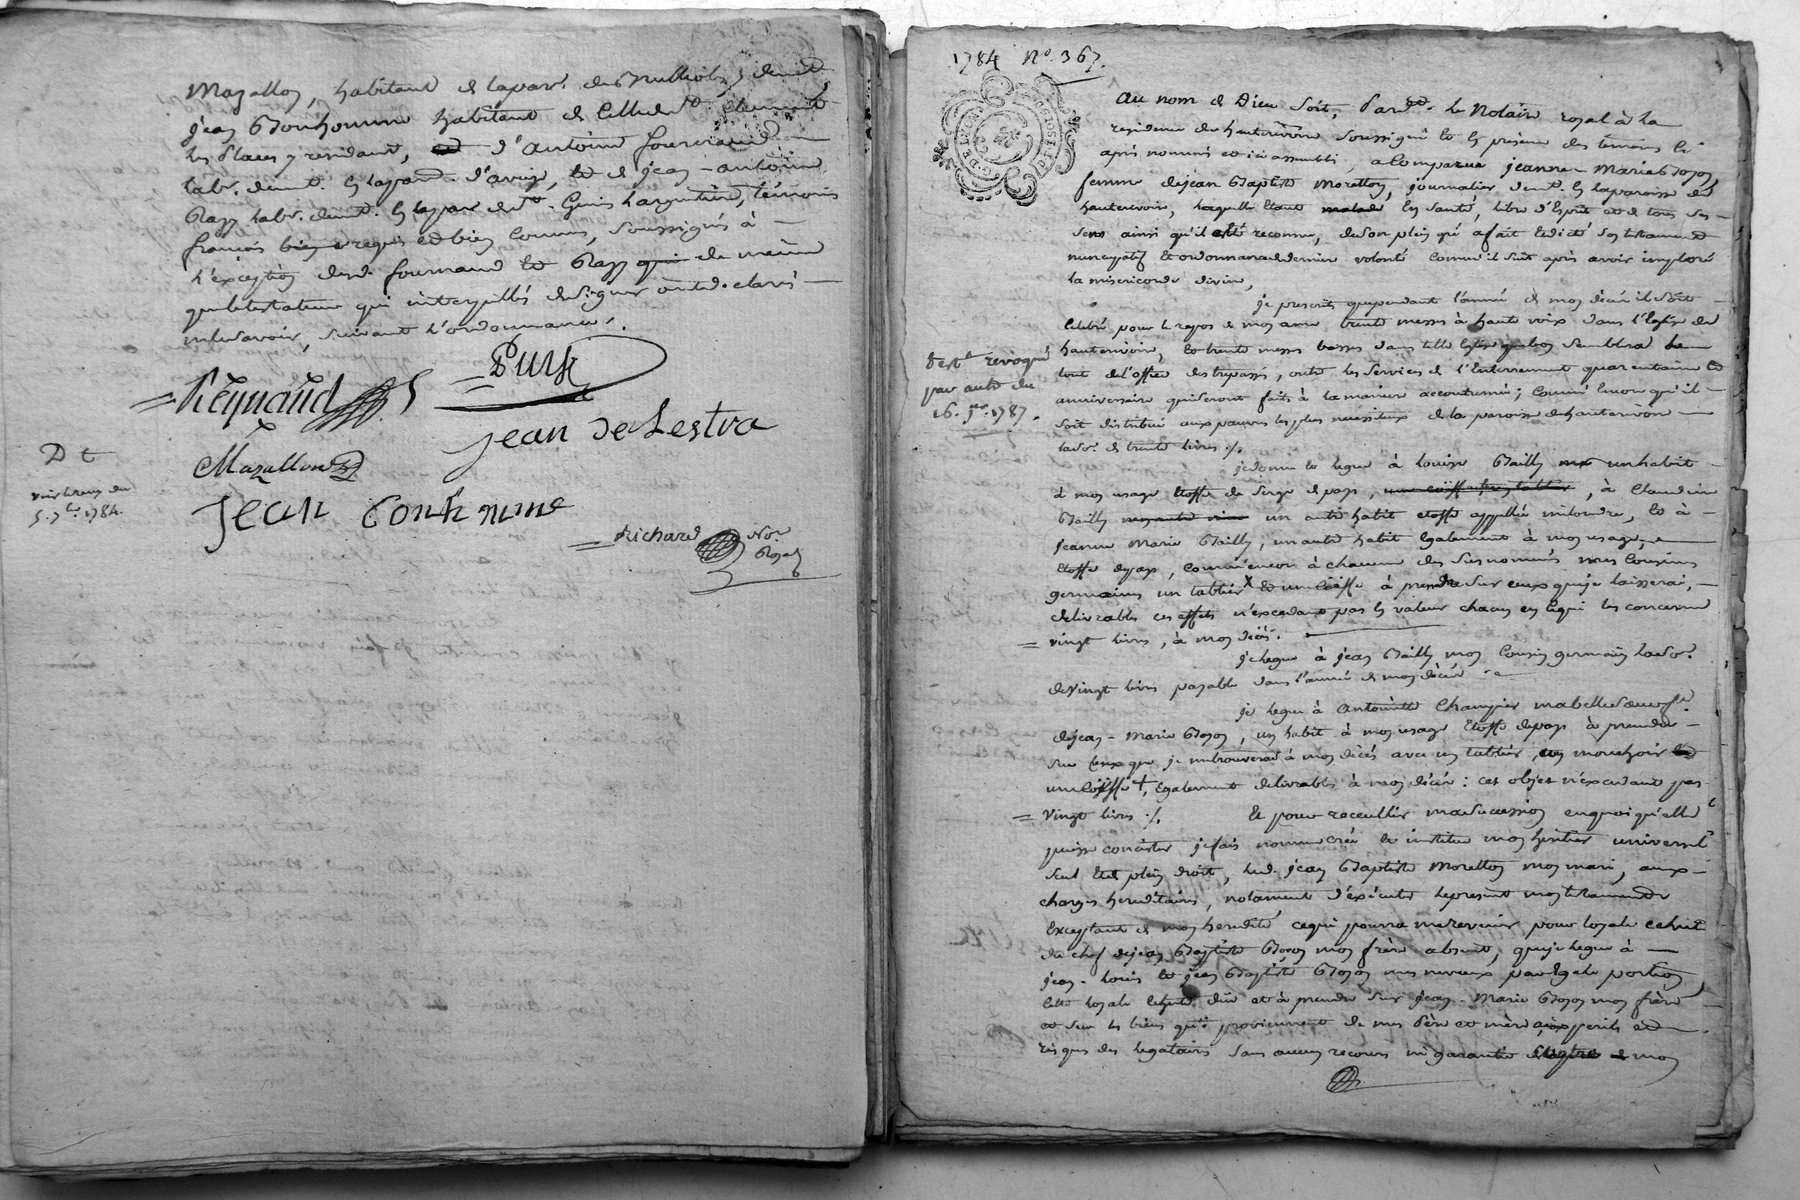 Magallon, habitant de lapar. des
jean Bonhomme habitant de st clement
les Places y residant, d'antoine fournand
labr. demt. en lapar. d'aveize, et de jean-antoine
Razy labr. demt. en lapar de st. Genis l'argentiere, témoins
françois requis et bien connus, soussignés à
l'exception desd. fournand et Razy de même
que letestateur qui interpellés designer ont declaré
nelesavoir, suivant l'ordonnance.
Reynaud
Jean de Lestra
Magallon
Jean Bonhomme
Richard Nore
Royal
D t
5. 7bre. 1784.
1784 No. 367.
Au nom de Dieu soit, Pardt. le Notaire royal à la
residence de hauterivoire soussigné et en présence des témoins cy
après nommés et ici assemblés, a comparue jeanne Marie Bozon,
femme dejean Baptiste Moretton, journalier demt. en laparoisse de
hauterivoire, laquelle étant malade en santé, libre d'Esprit et de tous ses
sens ainsi qu'il a été reconnu, deson plein gré afait et dicté son testament
nuncupatif et ordonnance dederniere volonté comm'il suit après avoir imploré
la misericorde divine,
je prescrits que pendant l'année de mon décès il soit
celebré pour le repos de mon ame trente messes à haute voix dans l'Eglise de
hauterivoire, et trente messes basses dans telle Eglise
tout de l'office des trepassés, outre les services de l'Enterrement quarantaine et
anniversaire qui seront faits à la maniere accoutumée; comm'encore qu'il
soit distribué aux pauvres les plus necessiteux de la paroisse de hauterivoire
laso. de trente livres ./.
Test. revoqué
par autre du
16. 1787.
jedonne et legue à louise Bailly un habit
à mon usage Etoffe de serge de pays, , à Claudine
Bailly un autre habit etoffe appellée miloudre, et à
jeanne Marie Bailly, un autre habit Egalement à mon usage,
Etoffe depays, comm'encore à chacune des susnommés mes cousines
germaines un tablier et une coëffe à prendre sur ceux que je laisserai,
delivrables ces effets n'excedant pas en valeur chacun en cequi les concerne
vingt livres, à mon décès.
je legue à jean Bailly mon Cousin germain laso.
devingt livres payable dans l'année de mon décès
je legue à Antoinette Champier mabellesoeur fe.
dejean-Marie Bozon, un habit à mon usage Etoffe depays à prendre
sur ceux que je me trouverai à mon décès avec un tablier, un mouchoir
une coëffe +, Egalement delivrables à mon décès: cet objet n'excedant pas
vingt livres ./. Et pour receuillir masuccession enquoi qu'elle
puisse consister jefais nomme crée et institue mon héritier universel
seul et de plein droit, led. jean Baptiste Moretton mon mari, aux
charges hereditaires, notament d'exécuter leprésent mon testament
Exceptant de mon heredité cequi pourra me revenir pour loyale echute
du chef dejean Baptiste Bozon mon frère absent, queje legue à
jean-louis et jean Baptiste Bozon mes neveux par Egale portion,
cette loyale echute due et à prendre sur jean-Marie Bozon mon frère
et sur les biens qui proviennent de mes Père et mère aux perils et
risques des legataires sans aucun recours ni garantie de mon